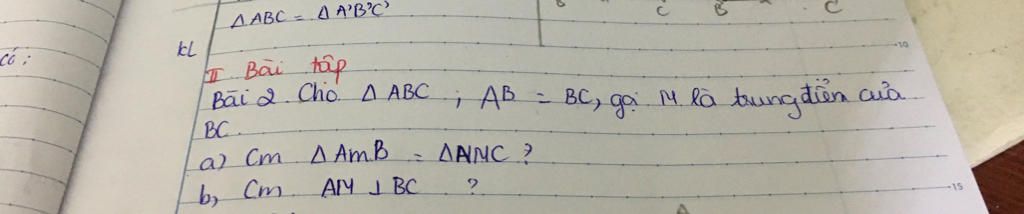 Δ ABC = Δ A'B'C'
B C B C
có ;
kl
10
II Bài tập
Bài 2. Cho Δ ABC ; AB = BC, gọi M là trung điểm của
BC
a) Cm Δ AmB = ΔAMC ?
b, Cm AM ⊥ BC ?
15